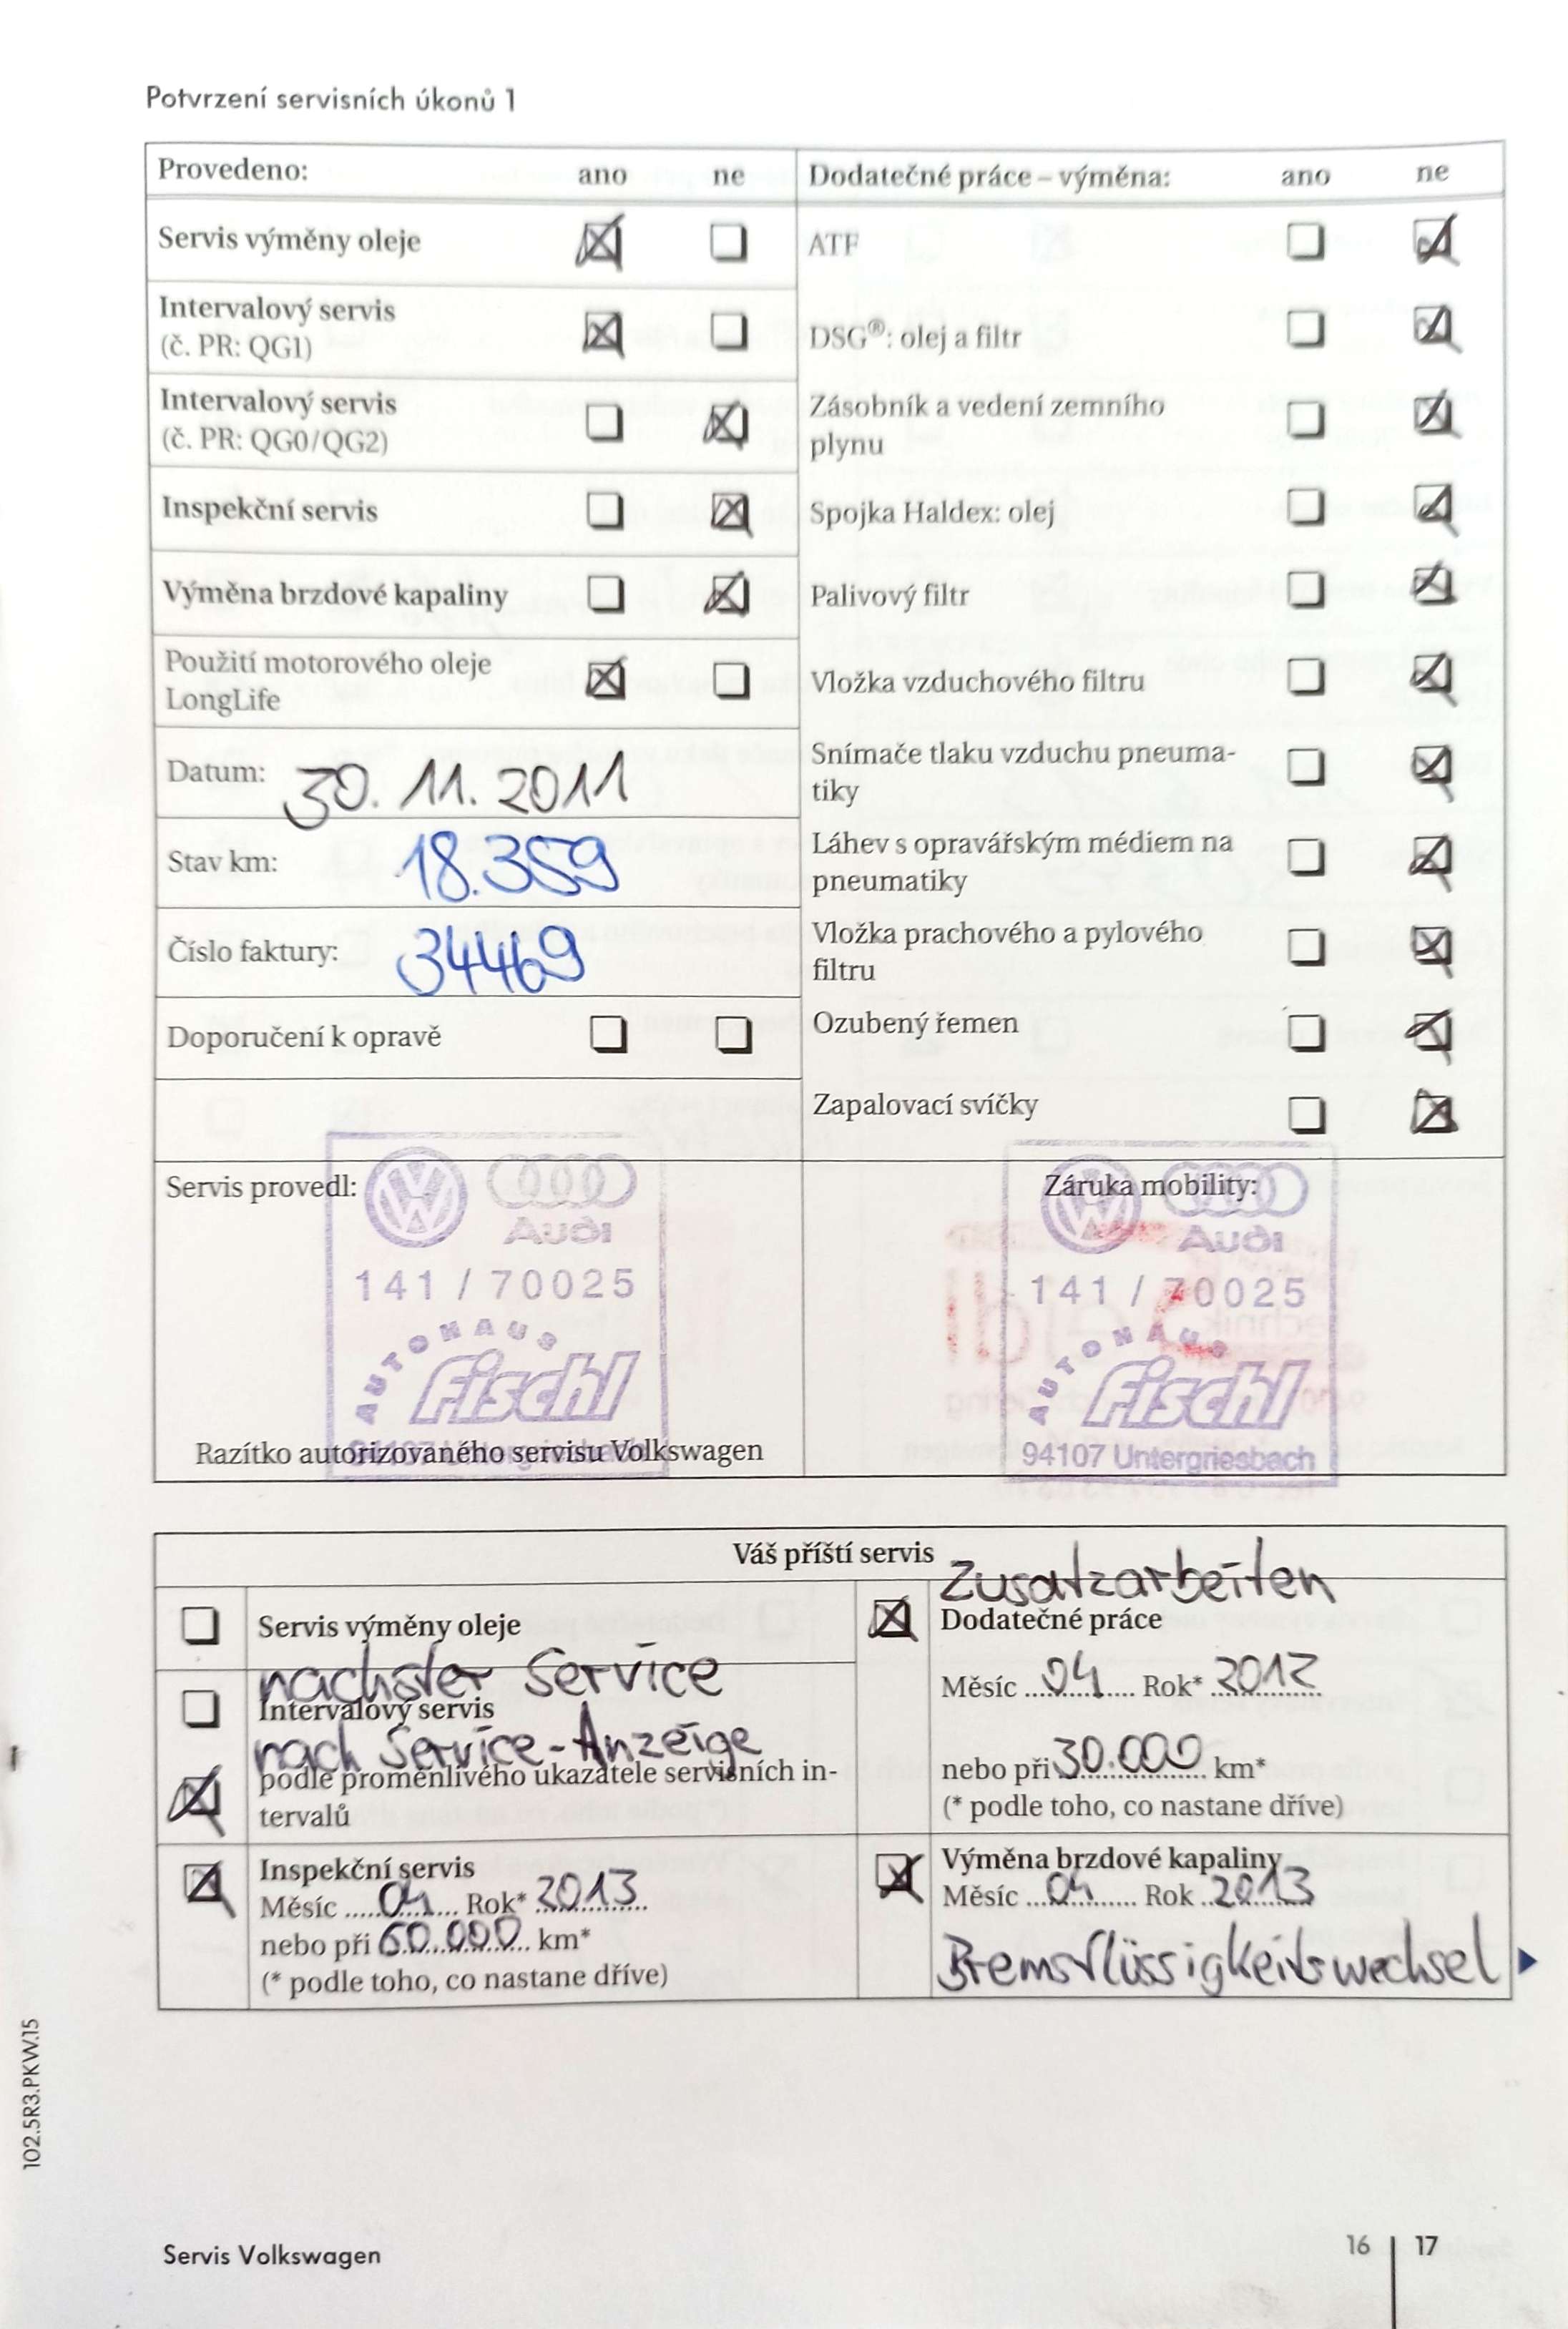 Potvrzení servisních úkonů 1
Provedeno: ano ne
Servis výměny oleje
Intervalový servis
(č. PR: QG1)
Intervalový servis
(č. PR: QG0/QG2)
Inspekční servis
Výměna brzdové kapaliny
Použití motorového oleje
LongLife
Datum: 30. 11. 2011
Stav km: 18.359
Číslo faktury: 34469
Doporučení k opravě
Dodatečné práce – výměna: ano ne
ATF
DSG®: olej a filtr
Zásobník a vedení zemního
plynu
Spojka Haldex: olej
Palivový filtr
Vložka vzduchového filtru
Snímače tlaku vzduchu pneuma-
tiky
Láhev s opravářským médiem na
pneumatiky
Vložka prachového a pylového
filtru
Ozubený řemen
Zapalovací svíčky
Servis provedl:
Audi
141 / 70025
AUTOHAUS
Fischl
94107 Untergriesbach
Razítko autorizovaného servisu Volkswagen
Záruka mobility:
Audi
141 / 70025
AUTOHAUS
Fischl
94107 Untergriesbach
Váš příští servis
Servis výměny oleje
nächster Service
Intervalový servis
nach Service-Anzeige
podle proměnlivého ukazatele servisních in-
tervalů
Zusatzarbeiten
Dodatečné práce
Měsíc 04 Rok* 2012
nebo při 30.000 km*
(* podle toho, co nastane dříve)
Inspekční servis
Měsíc 04 Rok* 2013
nebo při 60.000 km*
(* podle toho, co nastane dříve)
Výměna brzdové kapaliny
Měsíc 04 Rok 2013
Bremsflüssigkeitswechsel
102.5R3.PKW.15
Servis Volkswagen
16 | 17